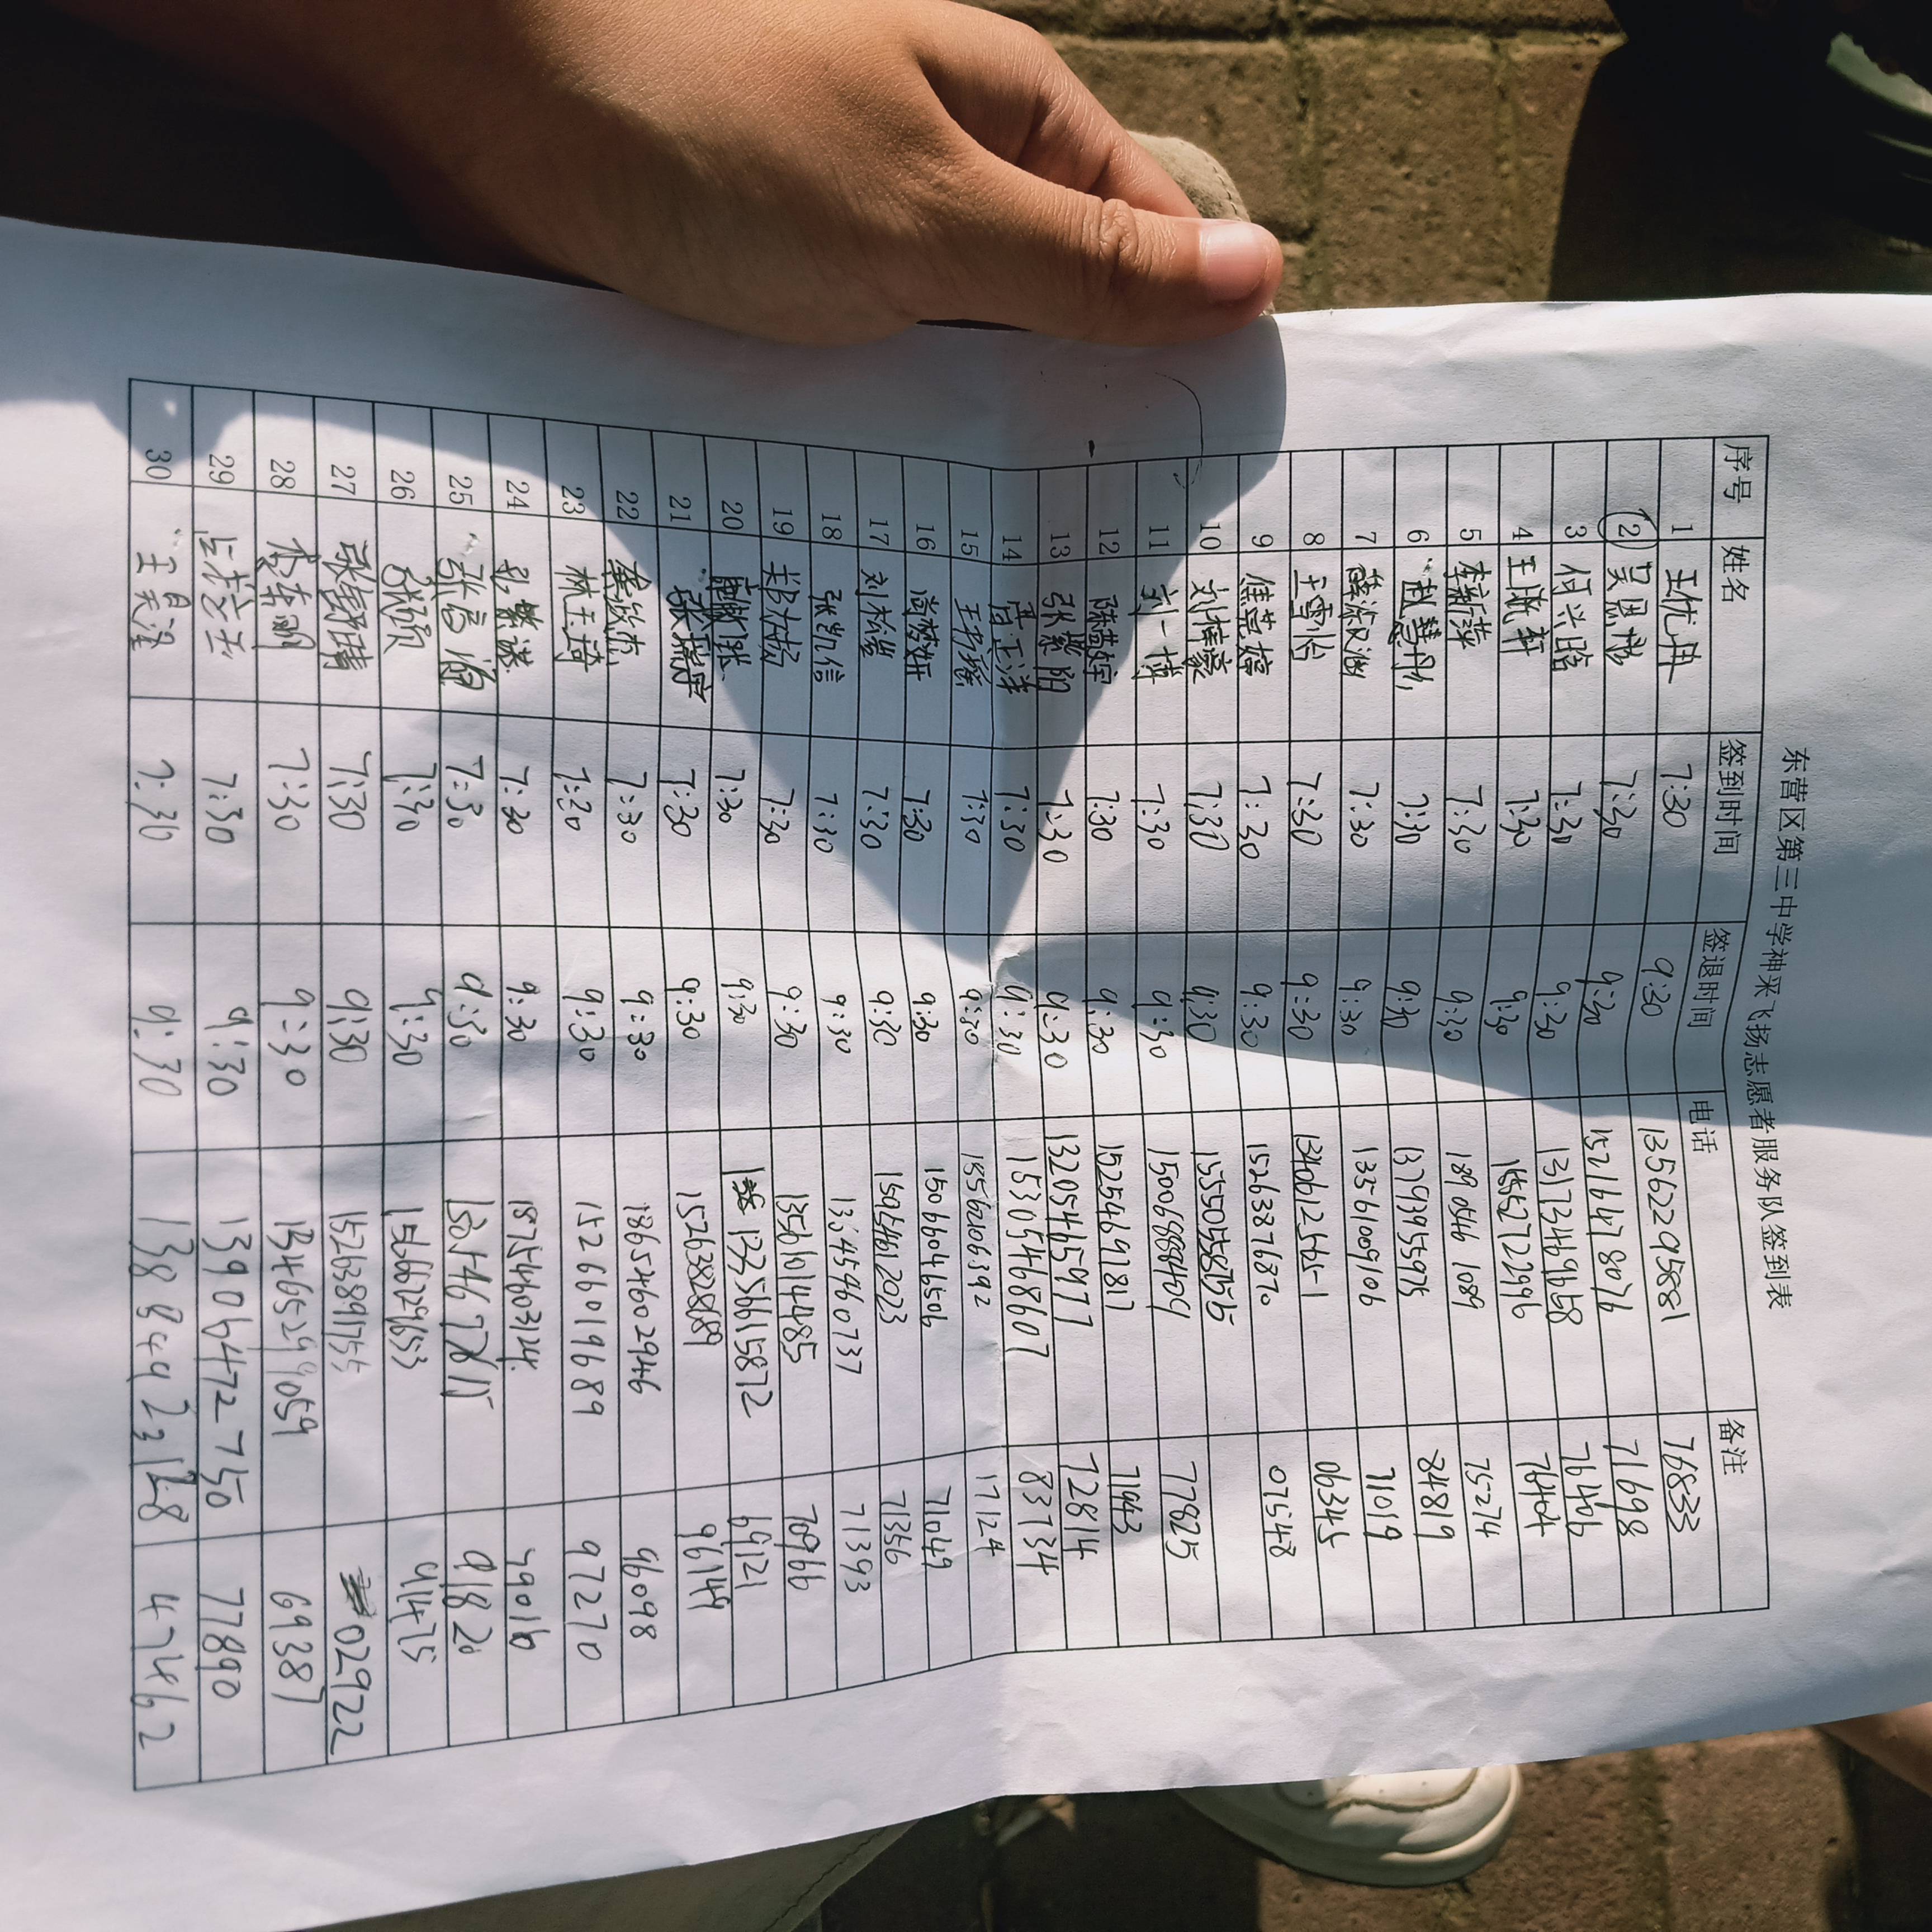 东营区第三中学神采飞扬志愿者服务队签到表
序号 姓名 签到时间 签退时间 电话 备注
1 王优冉 7:30 9:30 13562295881 76833
2 吴恩彬 7:30 9:30 15216678076 71698
3 何兴臨 7:30 9:30 13173469668 76496
4 王淑轩 7:30 9:30 15562722996 76404
5 李新萍 7:30 9:30 1890546 1089 75274
6 赵慧丹 7:30 9:30 13793955975 84819
7 薛涵 7:30 9:30 13561009106 71019
8 王雪怡 7:30 9:30 13406125651 06345
9 焦萱婷 7:30 9:30 15263876870 07548
10 刘梓豪 7:30 9:30 15550558755
11 刘一博 7:30 9:30 15006888409 77825
12 陈薪宇 7:30 9:30 15254691817 71943
13 张紫阳 7:30 9:30 13205465977 72814
14 晋正洋 7:30 9:30 15305468607 83734
15 王 7:30 9:30 15562106392 17124
16 尚梦妍 7:30 9:30 15066046506 71049
17 刘松 7:30 9:30 15954612023 71356
18 张凯信 7:30 9:30 13645460737 71393
19 7:30 9:30 13561014485 70966
20 7:30 9:30 13356615872 69121
21 张瑞宇 7:30 9:30 15263828889 96149
22 秦放杰 7:30 9:30 18654602946 96098
23 林玉琦 7:20 9:30 15266019689 97270
24 孔繁 7:30 9:30 18754603124 79016
25 张高 7:30 9:30 91820
26 张硕 7:30 9:30 15666296553 91475
27 张馨晴 7:30 9:30 15263891755 02922
28 李东 7:30 9:30 13465299059 69387
29 7:30 9:30 13906472750 77890
30 王昊 7:30 9:30 47462